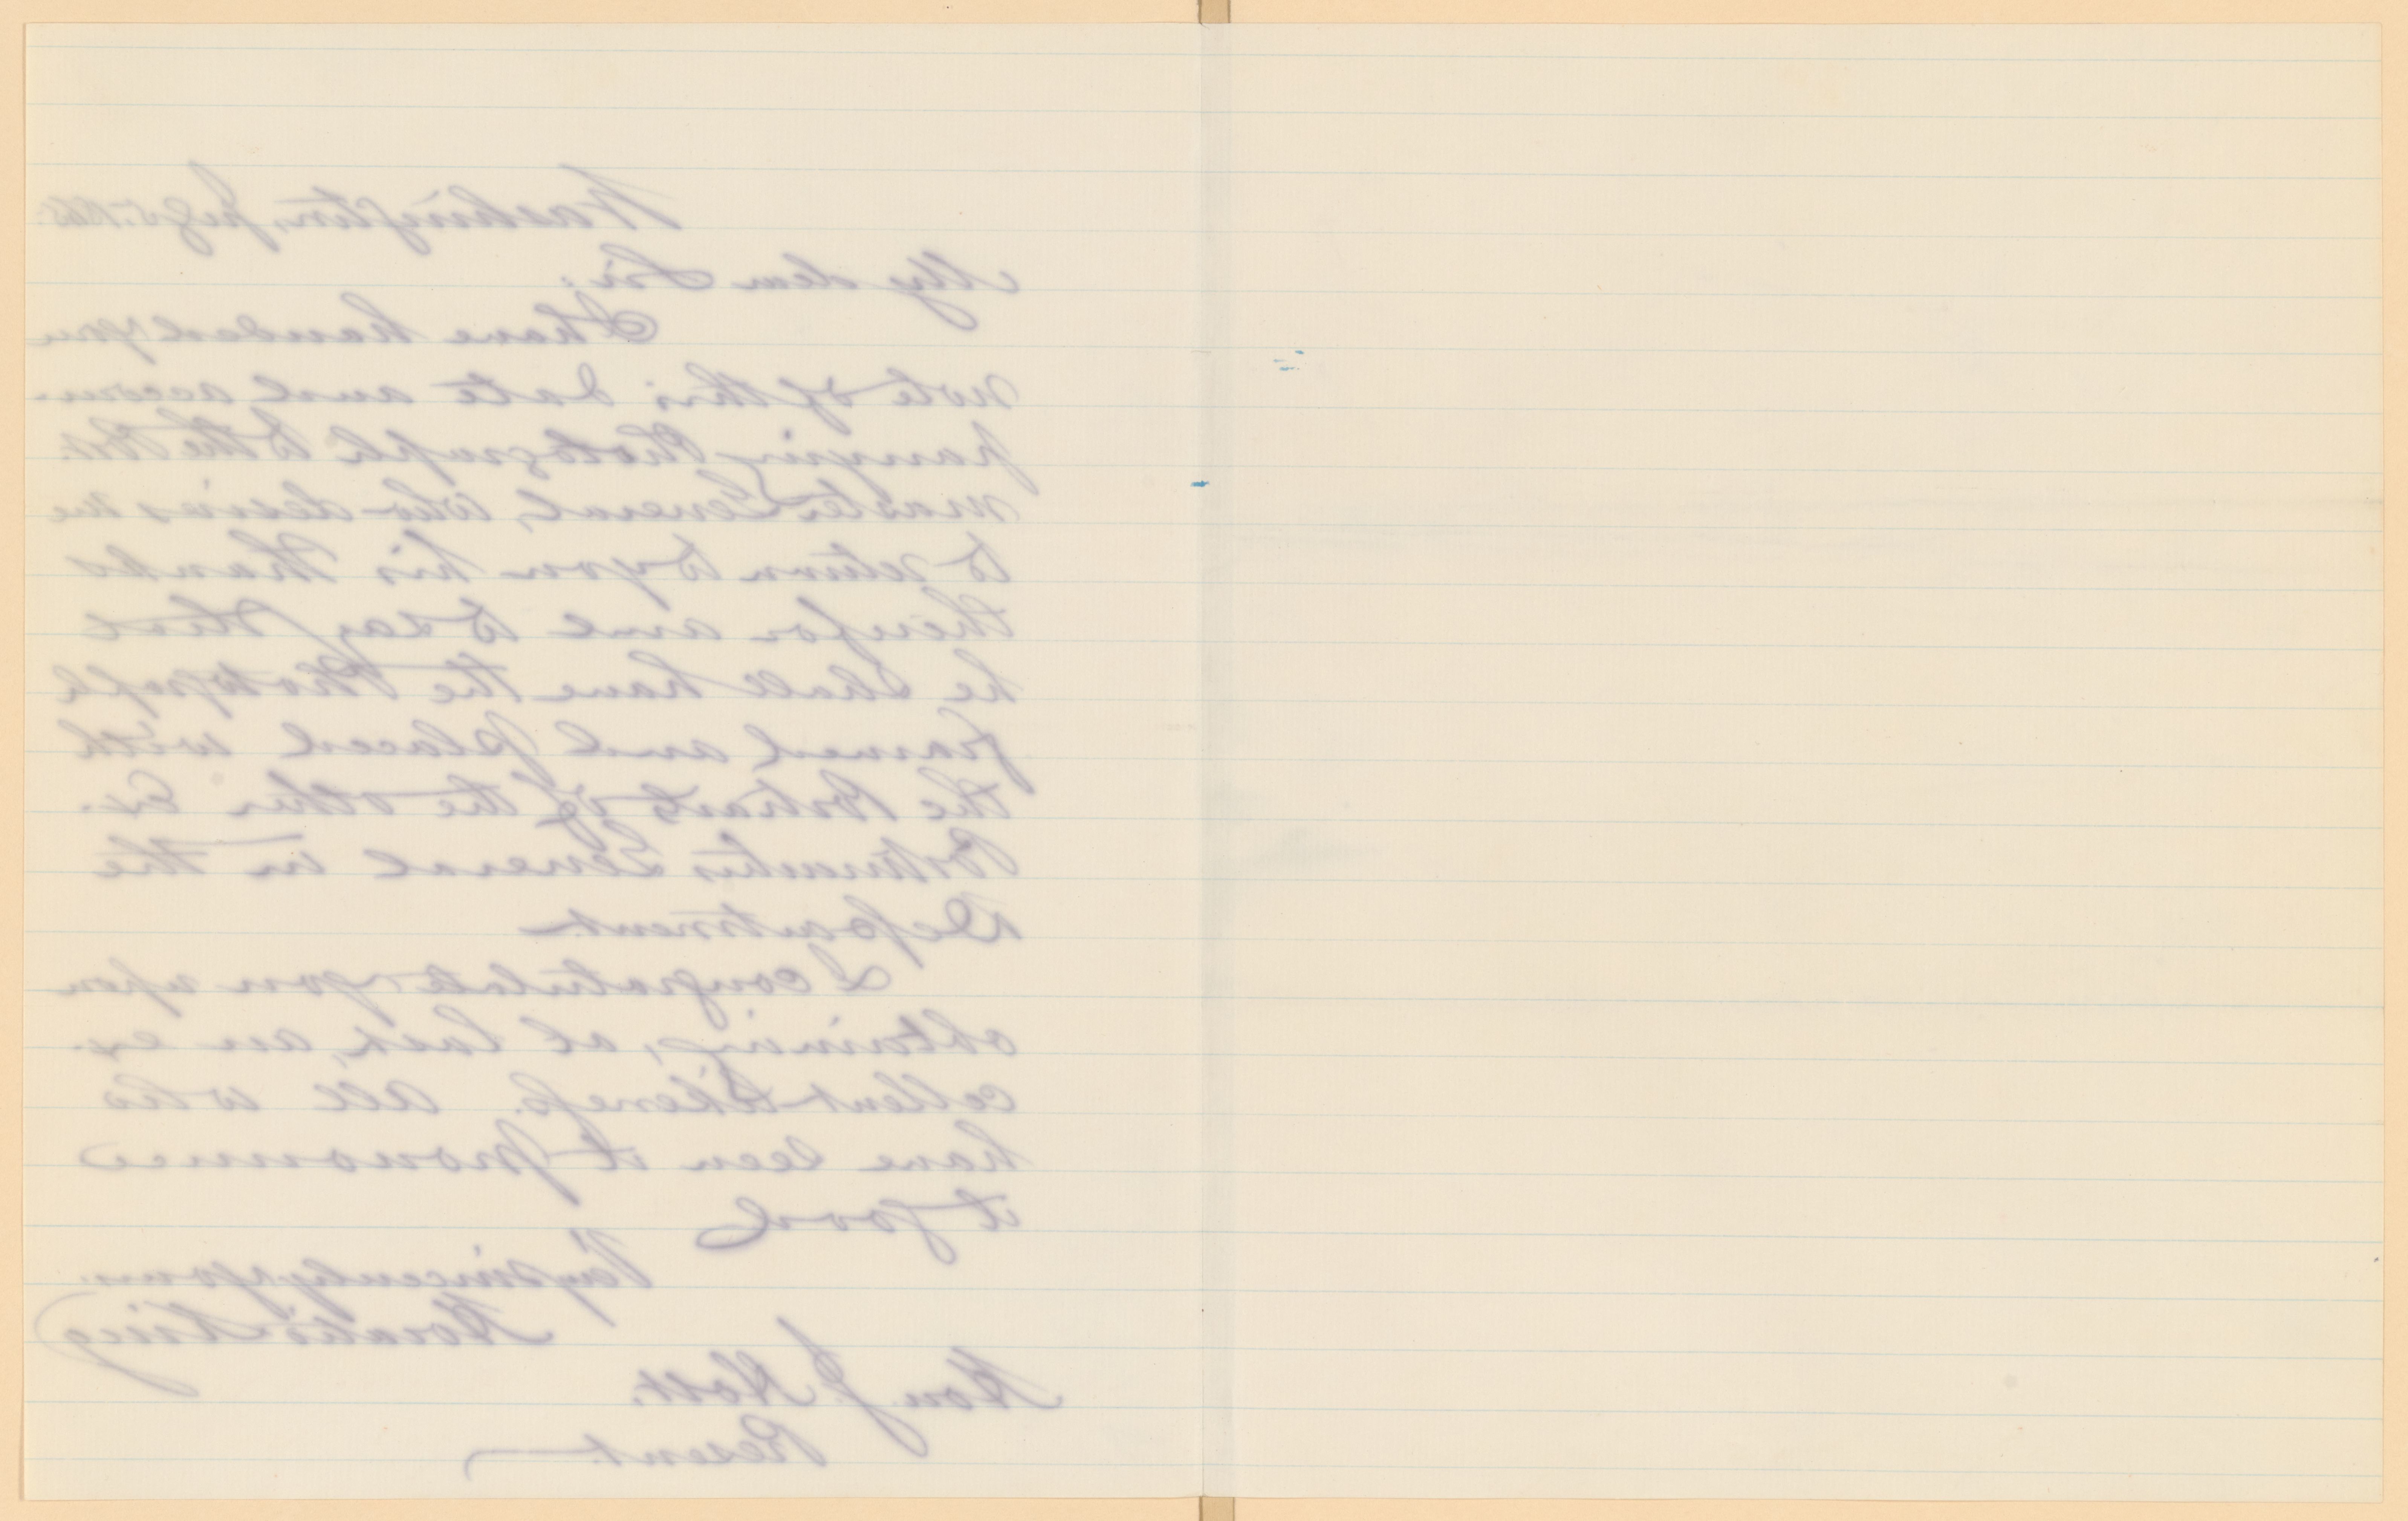 Washington,
My dear Sir:
I have handed your
note of this date and accom-
panying Photograph to the Post-
master General, who desires me
to return to you his thanks
therefor and to say that
he shall have the Photograph
framed and placed with
the Portraits of the other Ex-
Postmasters General in the
Department.
I congratulate you upon
obtaining, at last, an ex-
cellent likeness. All who
have seen it pronounce
it good
Very sincerely yours.
Horatio King
Hon. J. Holt.
Present.